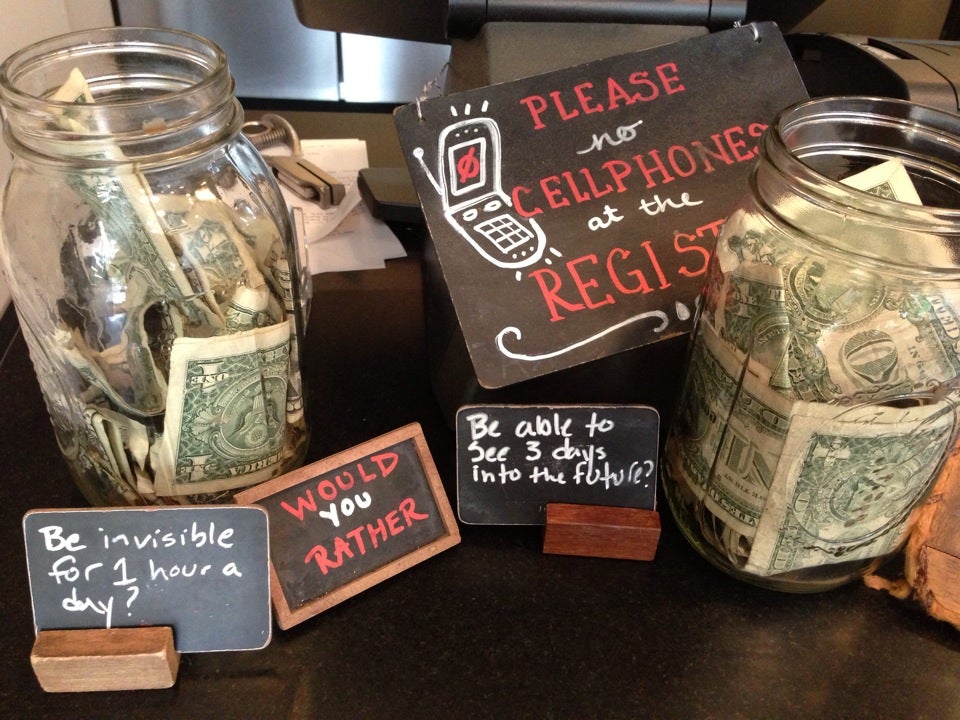 PLEASE
no
CELLPHONES
at the
REGIST
WOULD
YOU
RATHER
Be invisible
for 1 hour a
day?
Be able to
see 3 days
into the future?